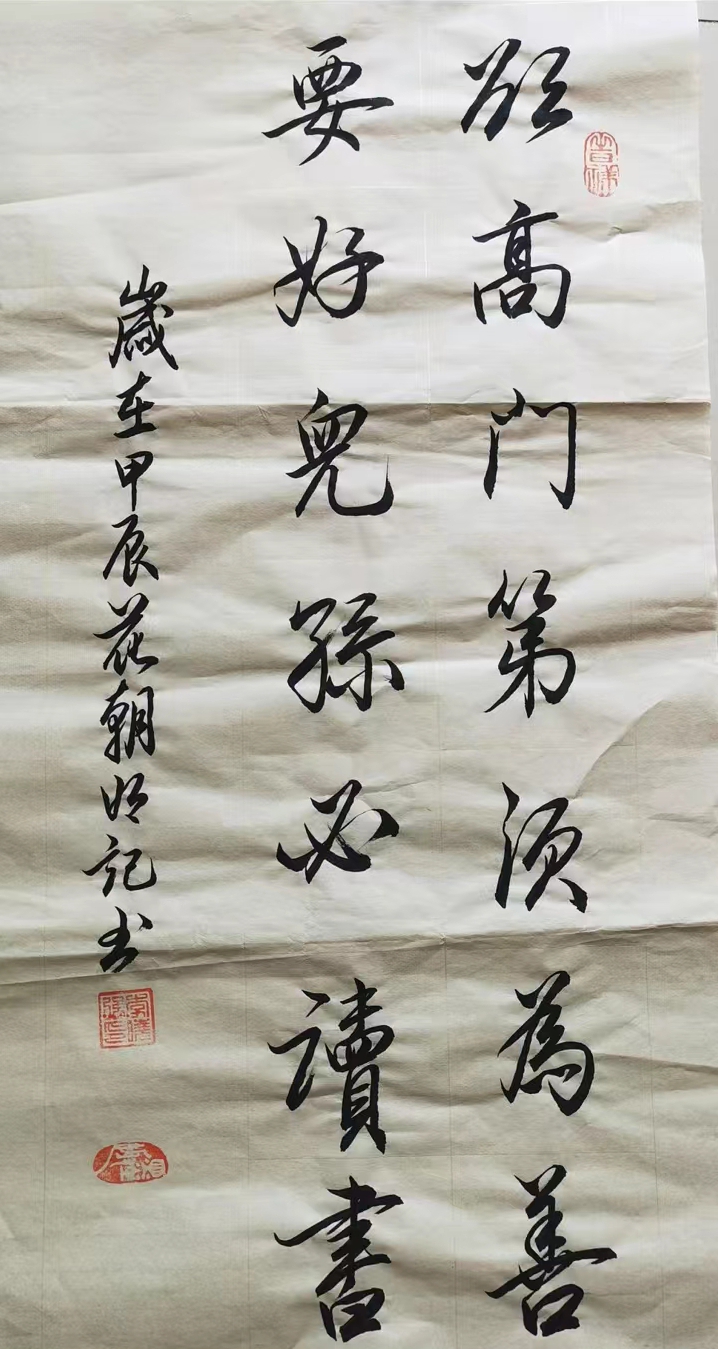 欲高門第須為善
要好兒孫必讀書
歲在甲辰花朝 記书